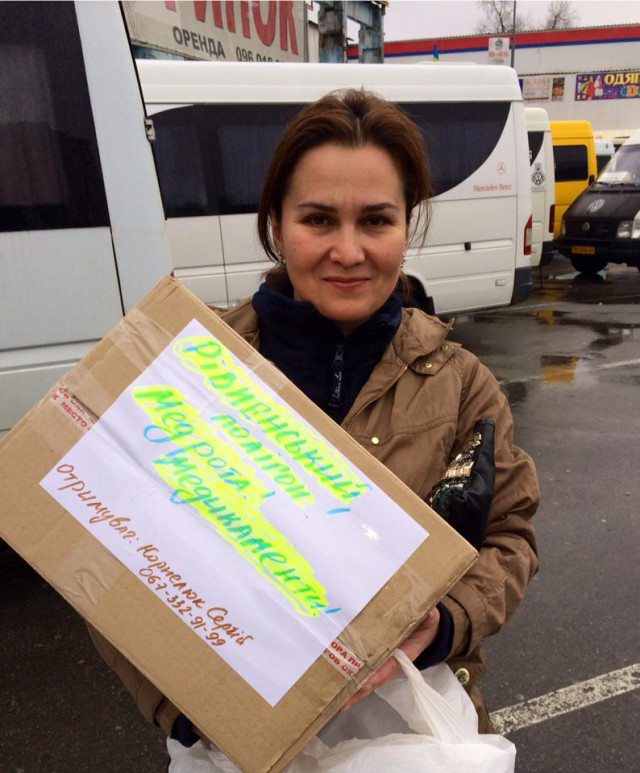 РИНОК
ОРЕНДА 096 019
ОДЯГ
Mercedes-Benz
Рівненський
полігон,
Медрота!
Медикаменти!
Отримувач: Корнелюк Сергій
067-332-91-99
К МЕСТО